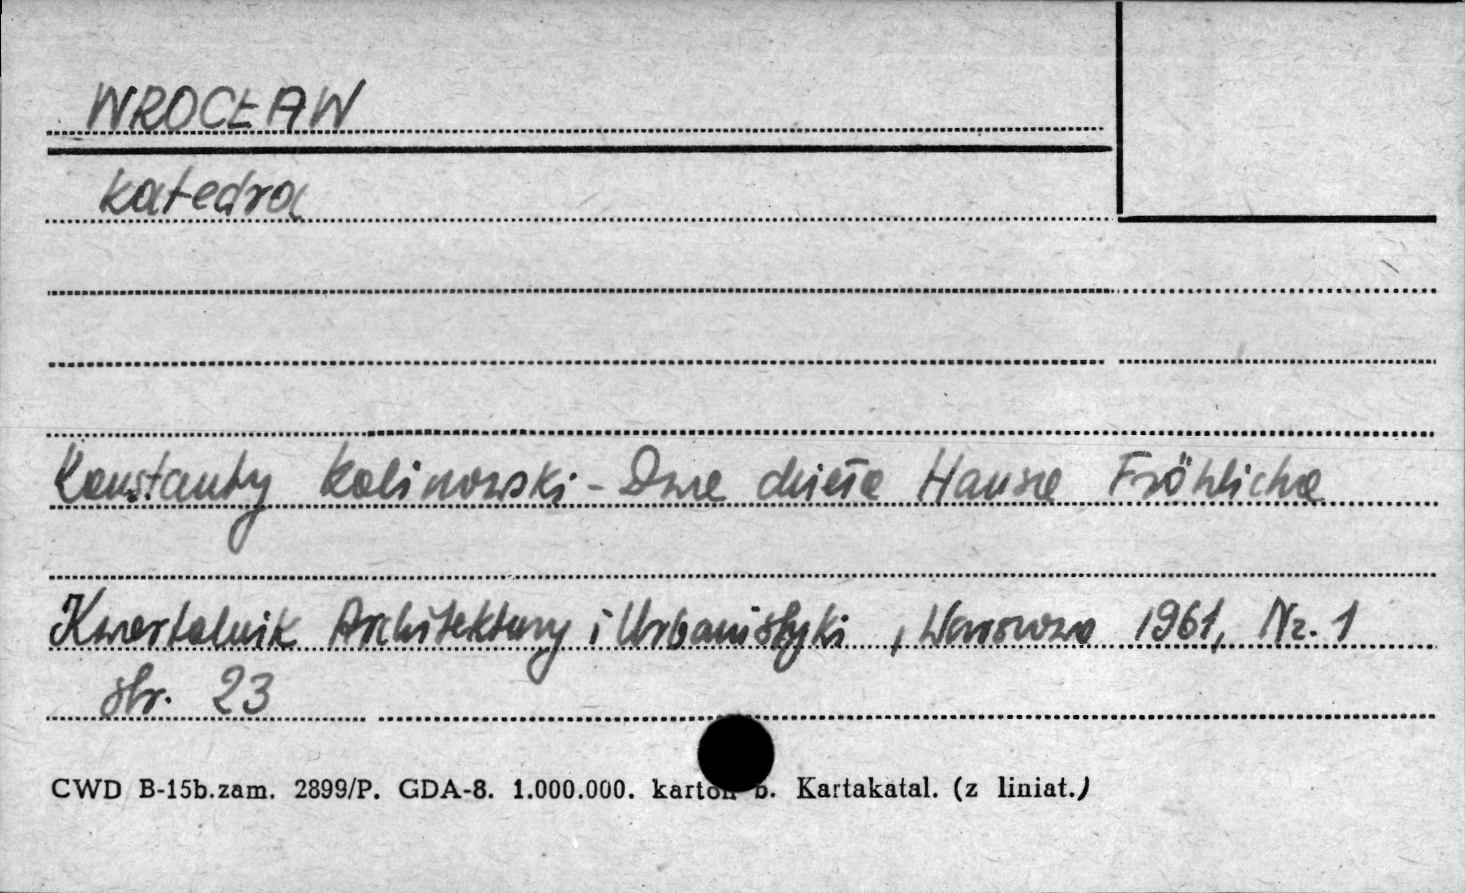 WROCŁAW
katedra
Konstanty Kalinowski - Dwa dzieła Hansa Fröhlicha
Kwartalnik Architektury i Urbanistyki, Warszawa 1961, Nr. 1
str. 23
CWD B-15b.zam. 2899/P. GDA-8. 1.000.000. karton b. Kartakatal. (z liniat.)